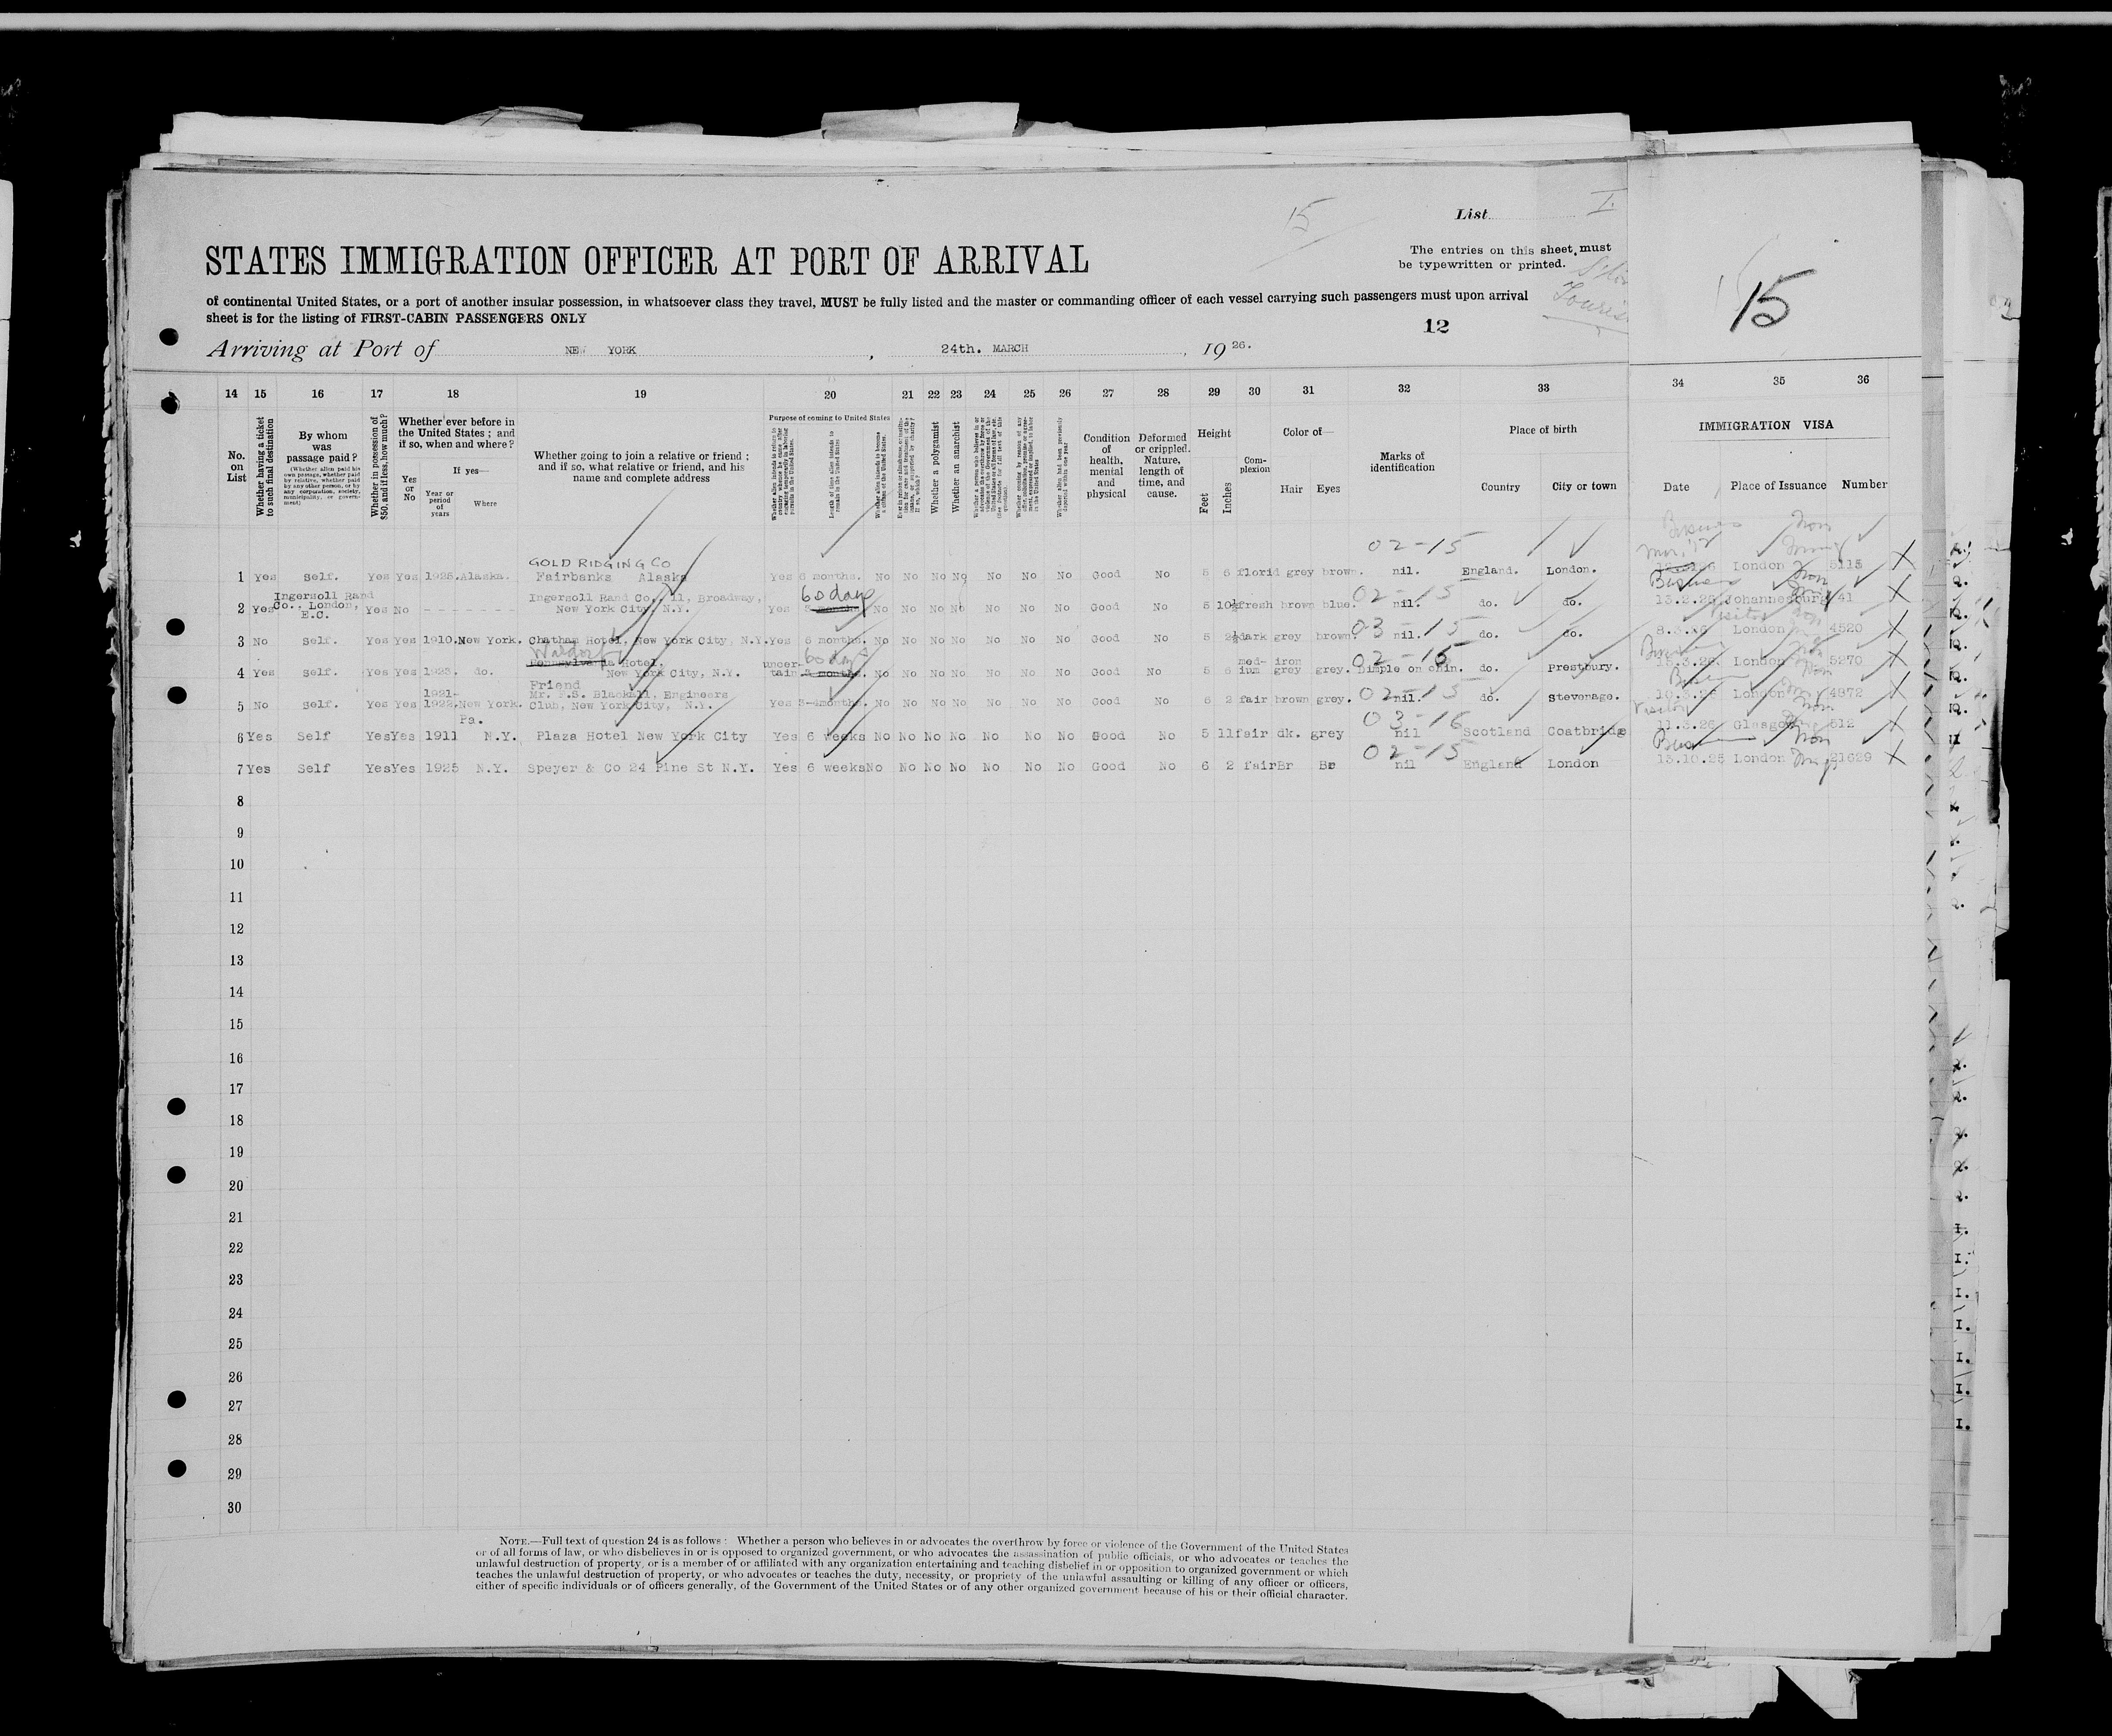 15
List I.
STATES IMMIGRATION OFFICER AT PORT OF ARRIVAL
The entries on this sheet must
be typewritten or printed.
of continental United States, or a port of another insular possession, in whatsoever class they travel, MUST be fully listed and the master or commanding officer of each vessel carrying such passengers must upon arrival
sheet is for the listing of FIRST-CABIN PASSENGERS ONLY
12
15
Arriving at Port of NEW YORK, 24th. MARCH, 19 26.
14 15 16 17 18 19 20 21 22 23 24 25 26 27 28 29 30 31 32 33 34 35 36
No. on List
Whether having a ticket to such final destination
By whom was passage paid?
(Whether alien paid his own passage, whether paid by relative, whether paid by any other person, or by any corporation, society, municipality, or government)
Whether in possession of $50, and if less, how much?
Whether ever before in the United States; and if so, when and where?
Yes or No
If yes—
Year or period of years
Where
Whether going to join a relative or friend; and if so, what relative or friend, and his name and complete address
Purpose of coming to United States
Length of time alien intends to remain in the United States
Whether alien intends to become a citizen of the United States.
Whether a polygamist
Whether an anarchist
Whether alien had been previously deported within one year
Condition of health, mental and physical
Deformed or crippled. Nature, length of time, and cause.
Height
Feet
Inches
Complexion
Color of—
Hair Eyes
Marks of identification
Place of birth
Country
City or town
IMMIGRATION VISA
Date
Place of Issuance
Number
02-15
GOLD RIDGING CO
1 Yes Self. Yes Yes 1925. Alaska. Fairbanks Alaska Yes 6 months. No No No No No No No Good No 5 6 florid grey brown. nil. England. London. London 5115 X
Ingersoll Rand Co., London, E.C.
60 days
02-15
2 Yes Yes No Ingersoll Rand Co., 11, Broadway, New York City, N.Y. Yes No No No No No No No Good No 5 10½ fresh brown blue. nil. do. do. 13.2.26 Johannesburg 41 X
03-15
3 No Self. Yes Yes 1910. New York. Chatham Hotel, New York City, N.Y. Yes 6 months. No No No No No No No Good No 5 2½ dark grey brown. nil. do. do. 8.3.26 London 4520 X
Waldorf
60 days
02-15
4 Yes Self. Yes Yes 1923. do. Pennsylvania Hotel, New York City, N.Y. uncertain 3 months. No No No No No No No Good No 5 6 medium iron grey grey. Dimple on chin. do. Prestbury. London 5270 X
Friend
02-15
5 No Self. Yes Yes 1921-1922. New York. Pa. Mr. F.S. Blackall, Engineers Club, New York City, N.Y. Yes 3-4months. No No No No No No No Good No 6 2 fair brown grey. nil. do. Stevenage. 10.3.26 London 4872 X
Visitor
03-16
6 Yes Self Yes Yes 1911 N.Y. Plaza Hotel New York City Yes 6 weeks No No No No No No No Good No 5 11 fair dk. grey nil Scotland Coatbridge 11.3.26 Glasgow 512 X
02-15
7 Yes Self Yes Yes 1925 N.Y. Speyer & Co 24 Pine St N.Y. Yes 6 weeks No No No No No No No Good No 6 2 fair Br Br nil England London 13.10.25 London 21629 X
8
9
10
11
12
13
14
15
16
17
18
19
20
21
22
23
24
25
26
27
28
29
30
NOTE.—Full text of question 24 is as follows: Whether a person who believes in or advocates the overthrow by force or violence of the Government of the United States
or of all forms of law, or who disbelieves in or is opposed to organized government, or who advocates the assassination of public officials, or who advocates or teaches the
unlawful destruction of property, or is a member of or affiliated with any organization entertaining and teaching disbelief in or opposition to organized government or which
teaches the unlawful destruction of property, or who advocates or teaches the duty, necessity, or propriety of the unlawful assaulting or killing of any officer or officers,
either of specific individuals or of officers generally, of the Government of the United States or of any other organized government because of his or their official character.